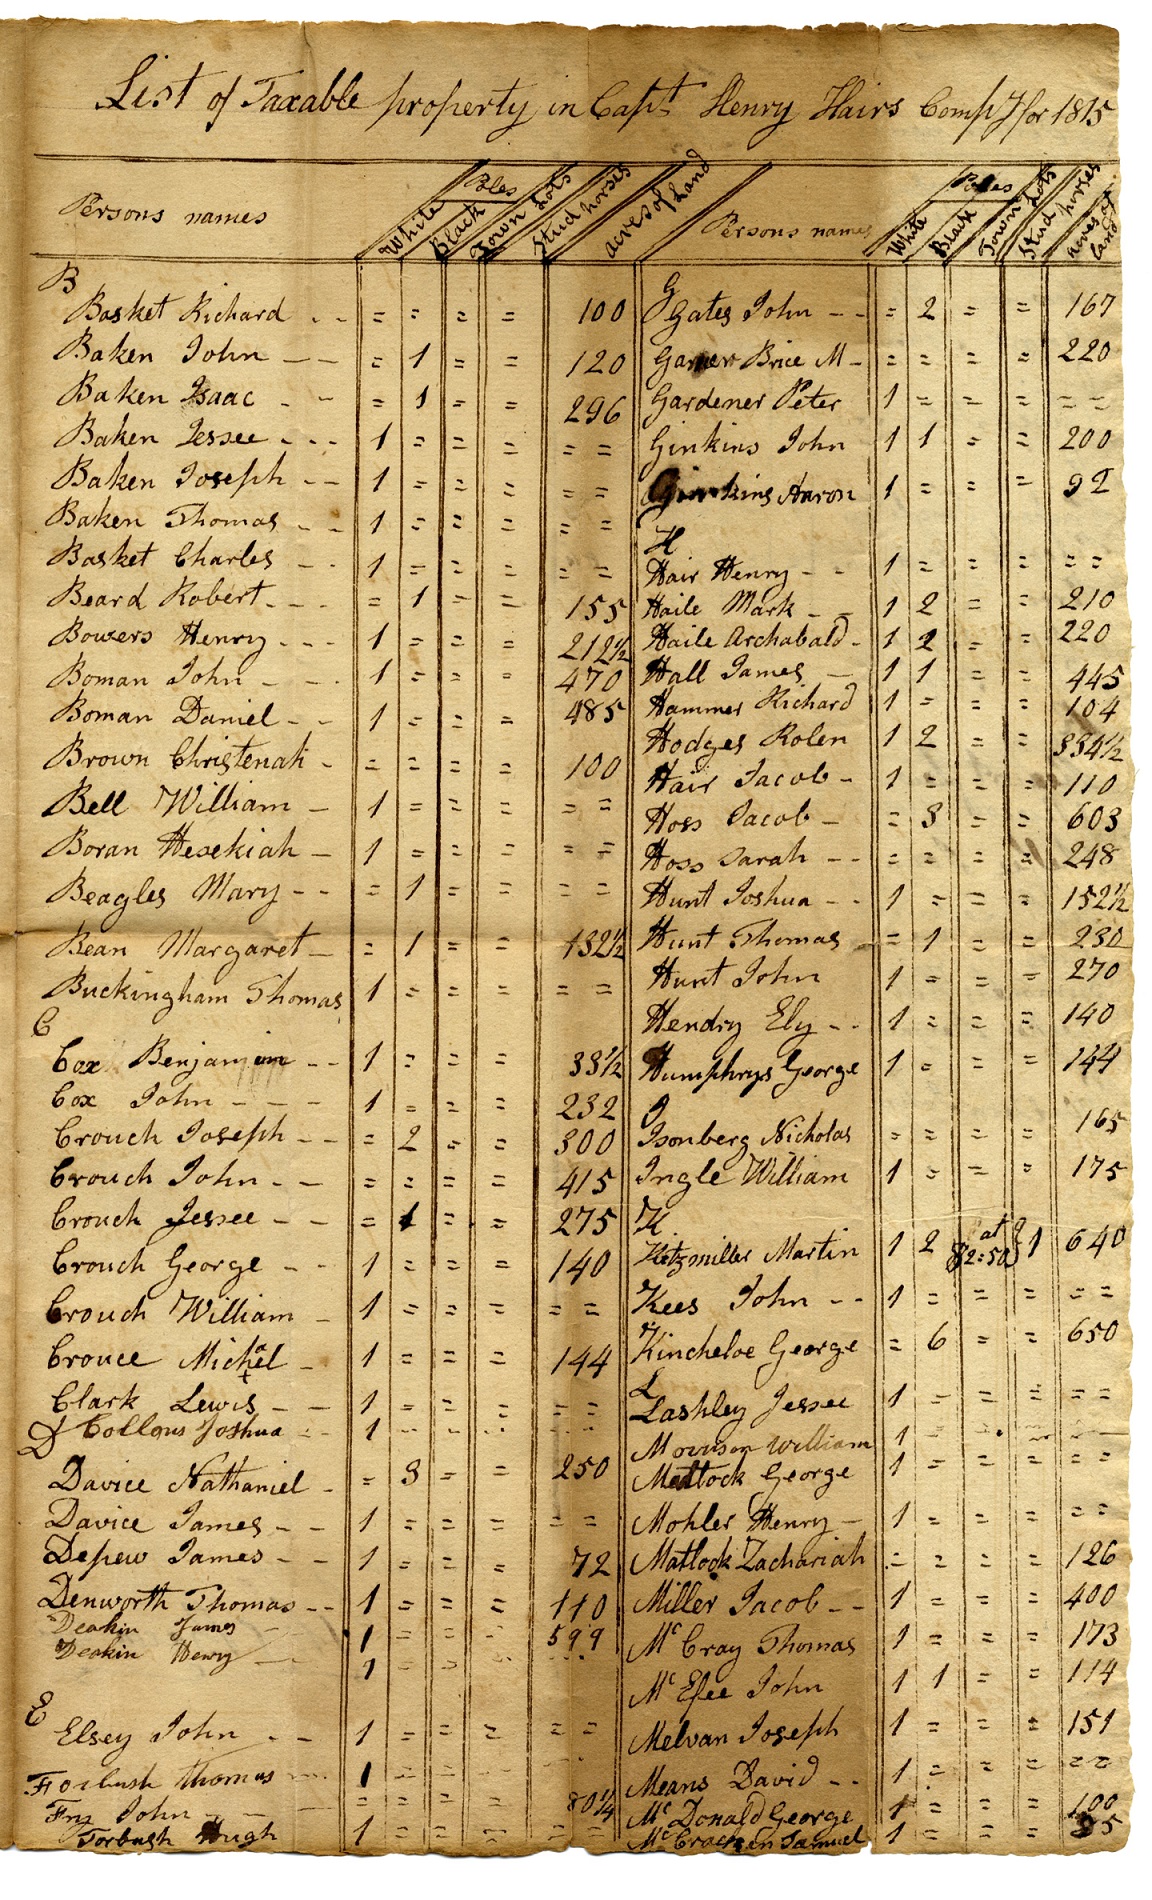 List of Taxable property in Capt Henry Hairs Compy for 1815
Persons names White Poles Black Town Lots Stud horses acres of Land
B
Basket Richard - - = = = = 100
Baken John - - = 1 = = 120
Baken Isaac - - = 1 = = 296
Baken Jessee - - - 1 = = = = =
Baken Joseph - - 1 = = = = =
Baken Thomas - - 1 = = = = =
Basket Charles - - 1 = = = = =
Beard Robert - - - = 1 = = 155
Bowers Henry - - - 1 = = = 212½
Boman John - - - 1 = = = 470
Boman Daniel - - 1 = = = 485
Brown Christenah - = = = = 100
Bell William - 1 = = = = =
Boran Hesekiah - 1 = = = = =
Beagles Mary - - = 1 = = = =
Bean Margaret - = 1 = = 132½
Buckingham Thomas 1 = = = = =
C
Cox Benjamin - - 1 = = = 33½
Cox John - - - 1 = = = 232
Crouch Joseph - - = 2 = = 300
Crouch John - - = = = = 415
Crouch Jessee - - = 1 = = 275
Crouch George - - 1 = = = 140
Crouch William - 1 = = = = =
Crouce Michael - 1 = = = 144
Clark Lewis - - 1 = = = = =
Collons Joshua - - 1 = = = = =
D
Davice Nathaniel - = 3 = = 250
Davice James - - 1 = = = = =
Depew James - - 1 = = = 72
Denworth Thomas - - 1 = = = 110
Deakin James - 1 = = = 599
Deakin Henry - 1 = = =
E
Elsey John - - 1 = = = = =
Forbush Thomas - - 1 = = =
Fry John - - = = = = 80¼
Forbush Hugh 1 = = = = =
Persons names White Poles Black Town Lots Stud horses acres of land
G
Gates John - - = 2 = = 167
Garner Brice M - = = = = 220
Gardener Peter 1 = = = = =
Ginkins John 1 1 = = 200
Ginkins Aaron 1 = = = 92
H
Hair Henry - - 1 = = = = =
Haile Mark - - 1 2 = = 210
Haile Archabald - 1 2 = = 220
Hall James - 1 1 = = 445
Hammer Richard 1 = = = 104
Hodges Rolen 1 2 = = 334½
Hair Jacob - 1 = = = 110
Hoss Jacob - = 3 = = 603
Hoss Sarah - - = = = = 248
Hunt Joshua - - 1 = = = 152½
Hunt Thomas = 1 = = 230
Hunt John 1 = = = 270
Hendry Ely - - 1 = = = 140
Humphrys George 1 = = = 144
I
Isonberg Nicholas = = = = 165
Ingle William 1 = = = 175
K
Kitzmiller Martin 1 2 at $2:50 1 640
Kees John - - 1 = = = = =
Kincheloe George = 6 = = 650
L
Lashley Jessee 1 = = = = =
Morrison William 1 = = =
Matlock George 1 = = = = =
Mohler Henry - 1 = = = = =
Matlock Zachariah = = = = 126
Miller Jacob - - 1 = = = 400
Mc Cray Thomas 1 = = = 173
Mc Efee John 1 1 = = 114
Melvan Joseph 1 = = = 151
Means David - - 1 = = = = =
Mc Donald George 1 = = = 100
Mc Cracken Samuel 1 = = = 35